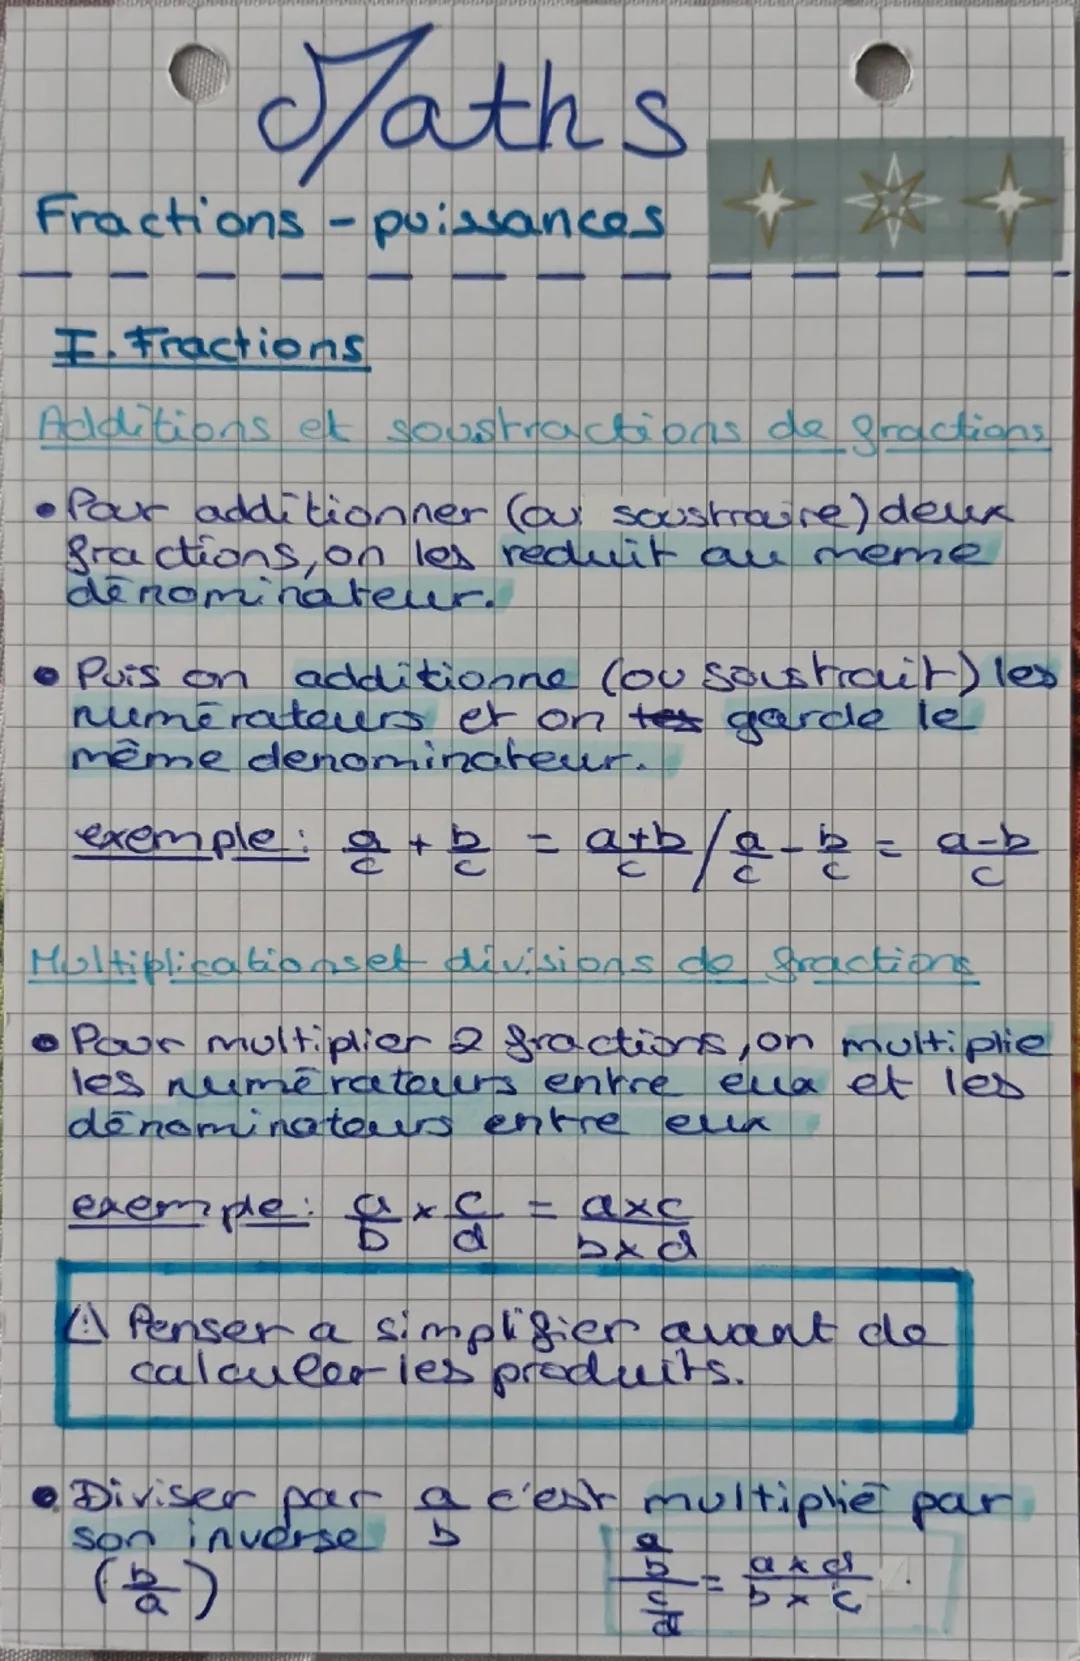 Maths
Fractions - puissances
I. Fractions
Additions et soustractions de fractions
• Pour additionner (ou soustraire) deux
fractions, on les reduit au meme
dénominateur.
• Puis on additionne (ou soustrait) les
numérateurs et on les garde le
même denominateur.
exemple : a/c + b/c = a+b/c / a/c - b/c = a-b/c
Multiplications et divisions de fractions
• Pour multiplier 2 fractions, on multiplie
les numérateurs entre eux et les
dénominateurs entre eux
exemple : a/b × c/d = a×c/b×d
⚠ Penser a simplifier avant de
calculer les produits.
• Diviser par a/b c'est multiplié par
son inverse
(b/a)
a/b / c/d = a×d/b×c